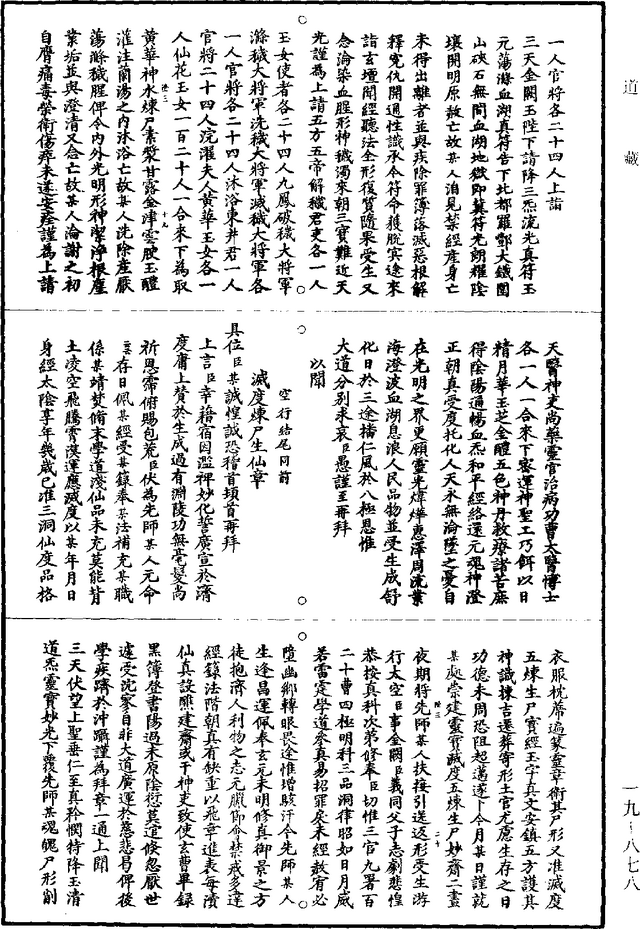 道藏
一人官將各二十四人上詣
三天金闕玉陛下請降三炁流光真符玉
元蕩滌血湖真符告下北都羅酆大鐵圍
山硤石無間血湖地獄即冀符光朗耀陰
壤開明原赦亡故某人洎見禁經產身亡
未得出離者並與疾除罪簿落滅惡根解
釋冤仇開通性識承今符命獲脫冥途來
詣玄壇聞經聽法全形復質隨果受生又
念淪染血腥形神穢濁來朝三寶難近天
光謹為上請五方五帝解穢君吏各一人
玉女使者各二十四人九鳳破穢大將軍
滌穢大將軍洗穢大將軍滅穢大將軍各
一人官將各二十四人沐浴東井君一人
官將二十四人浣濯夫人黃華玉女各一
人仙花玉女一百二十人一合來下為取
黃華神水煉尸素漿甘露金津雲腴玉醴
灌注蘭湯之內沐浴亡故某人洗除產厭
蕩滌穢腥俾令內外光明形神潔淨根塵
業垢並與澄清又念亡故某人淪謝之初
自膺痛毒榮衛傷瘁未遂安痊謹為上請
天醫神吏尚藥靈官治病功曹太醫博士
各一人一合來下密運神聖工巧餌以日
精月華玉芝金醴五色神丹救療諸苦庶
得陰陽通暢血炁和平經絡還元魂神澄
正朝真受度托化人天永無淪墜之憂自
在光明之界更願靈光煒燁惠澤周流業
海澄波血湖息浪人民品物並受生成舒
化日於三途播仁風於八極恩惟
大道分別求哀臣愚謹至再拜
以聞
空行結尾同前
滅度煉尸生仙章
具位臣某誠惶誠恐稽首頓首再拜
上言臣幸藉宿因濫裨妙化誓廣宣於濟
度庸上贊於生成過有淵陵功無毫髮尚
祈恩霈俯賜包荒臣伏為先師某人元命
某存日佩某經受某錄奉某法補充某職
係某靖焚脩末學道淺仙品未充莫能背
土凌空飛騰霄漢運應滅度以某年月日
身經太陰享年幾歲已准三洞仙度品格
衣服枕蓆遍篆靈章衛其尸形又准滅度
五煉生尸寶經玉字真文安鎮五方護其
神識揀吉遷葬寄形土官尤慮生存之日
功德未周恐阻起邁遂卜今月某日謹就
某處崇建靈寶滅度五煉生尸妙齋二晝
夜期將先師某人扶接引送返形受生游
行太空臣事金闕臣義同父子志劇悲惶
恭按真科次第修奉臣切惟三官九署百
二十曹四極明科三品洞律昭如日月威
若雷霆學道參真易招罪戾未經赦宥必
墮幽鄉轉眼畏途惟增駭汗今先師某人
生逢昌運佩奉玄元未明修真御景之方
徒抱濟人利物之志元臘節命禁戒多違
經籙法階朝真有缺重以飛章進表每瀆
仙真設醮建齋或干神吏致使玄曹畢錄
黑簿登書陽過未原陰愆莫逭倏忽厭世
遽受沉冥自非大道廣運於慈悲曷俾後
學疾躋於沖躡謹為拜章一通上聞
三天伏望上聖垂仁至真矜憫特降玉清
道炁靈寶妙光下覆先師某魂魄尸形削
一九‐八七八